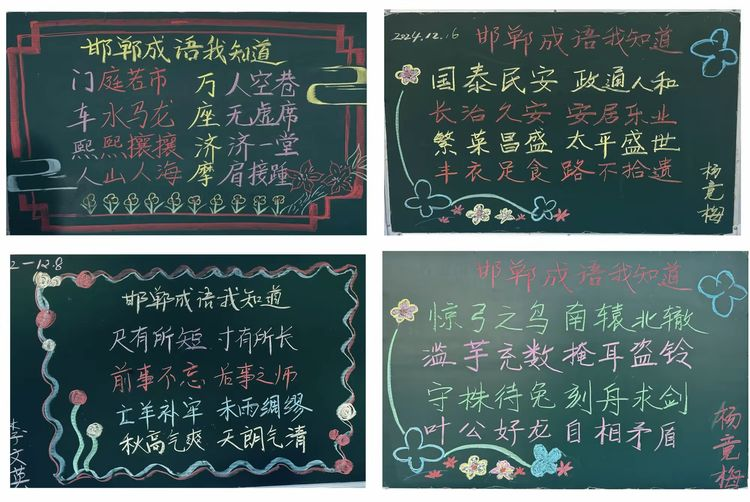 邯郸成语我知道
门庭若市 万人空巷
车水马龙 座无虚席
熙熙攘攘 济济一堂
人山人海 摩肩接踵
2024.12.16
邯郸成语我知道
国泰民安 政通人和
长治久安 安居乐业
繁荣昌盛 太平盛世
丰衣足食 路不拾遗
杨竟梅
2-12.8
邯郸成语我知道
尺有所短 寸有所长
前事不忘 后事之师
亡羊补牢 未雨绸缪
秋高气爽 天朗气清
李文英
邯郸成语我知道
惊弓之鸟 南辕北辙
滥芋充数 掩耳盗铃
守株待兔 刻舟求剑
叶公好龙 自相矛盾
杨竟梅